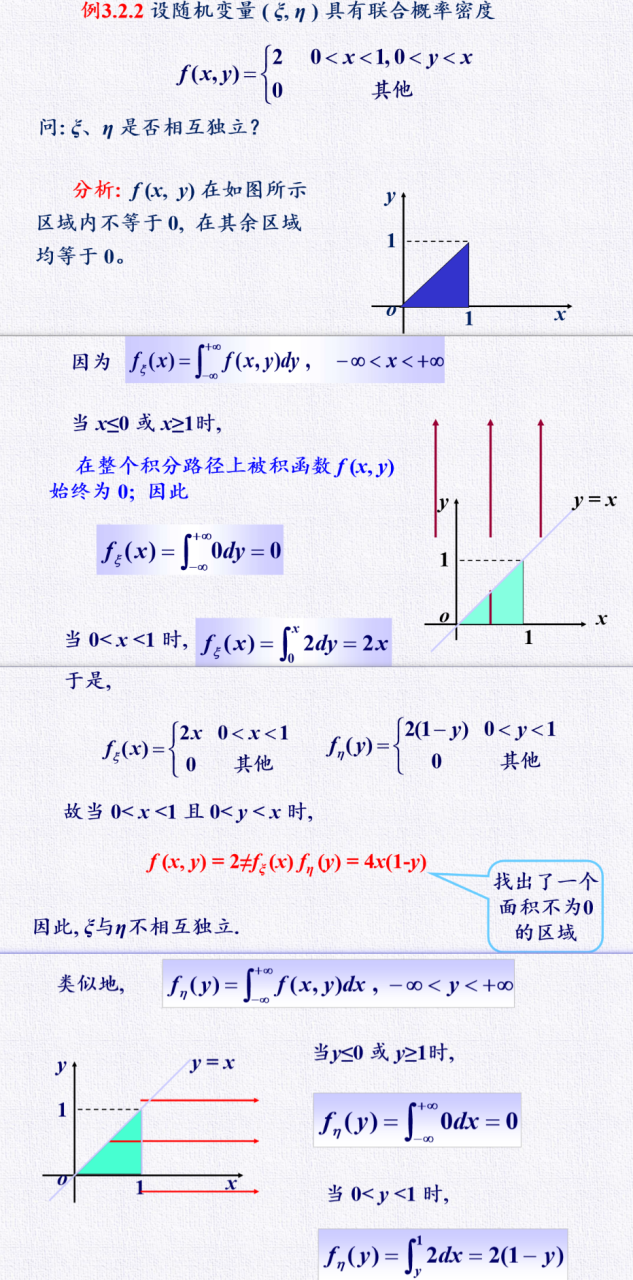 例3.2.2 设随机变量 ( ξ, η ) 具有联合概率密度
f(x,y)={2 0<x<1,0<y<x
0 其他
问: ξ、η 是否相互独立?
分析: f (x, y) 在如图所示
区域内不等于 0, 在其余区域
均等于 0。
y
1
o
1
x
因为 f_ξ(x)=∫_{-∞}^{+∞} f(x,y)dy , -∞<x<+∞
当 x≤0 或 x≥1时,
在整个积分路径上被积函数 f (x, y)
始终为 0; 因此
f_ξ(x)=∫_{-∞}^{+∞} 0dy = 0
y
y = x
1
o
x
1
当 0< x <1 时, f_ξ(x)=∫_0^x 2dy = 2x
于是,
f_ξ(x)={2x 0<x<1
0 其他
f_η(y)={2(1-y) 0<y<1
0 其他
故当 0< x <1 且 0< y < x 时,
f (x, y) = 2≠f_ξ (x) f_η (y) = 4x(1-y)
找出了一个
面积不为0
的区域
因此, ξ与η不相互独立.
类似地, f_η(y)=∫_{-∞}^{+∞} f(x,y)dx , -∞<y<+∞
y
y = x
1
o
1
x
当y≤0 或 y≥1时,
f_η(y)=∫_{-∞}^{+∞} 0dx = 0
当 0< y <1 时,
f_η(y)=∫_y^1 2dx = 2(1-y)